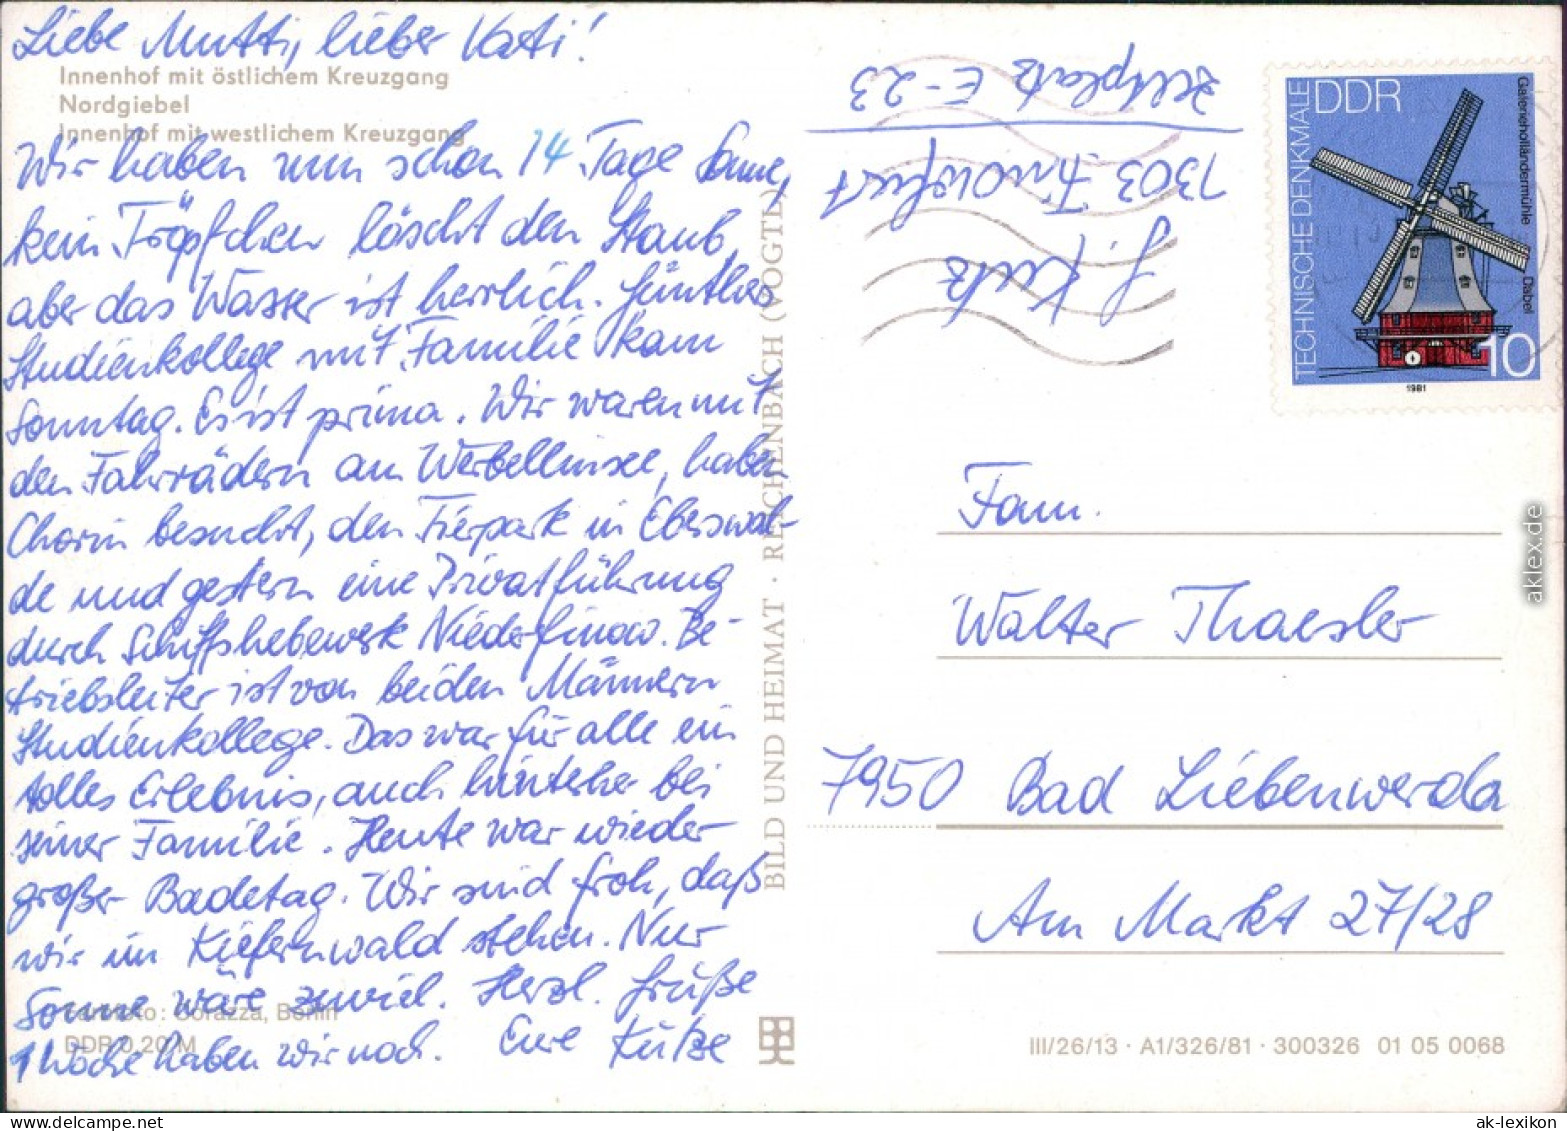 Liebe Mutti, lieber Vati!
Innenhof mit östlichem Kreuzgang
Nordgiebel
Innenhof mit westlichem Kreuzgang
Wir haben nun schon 14 Tage Sonne,
kein Tröpfchen löscht den Staub,
aber das Wasser ist herrlich. Günthers
Studienkollege mit Familie kam
Sonntag. Es ist prima. Wir waren mit
den Fahrrädern am Werbellinsee, haben
Chorin besucht, den Tierpark in Eberswal-
de und gestern eine Privatführung
durch Schiffshebewerk Niederfinow. Be-
triebsleiter ist von beiden Männern
Studienkollege. Das war für alle ein
tolles Erlebnis, auch hinterher bei
seiner Familie. Heute war wieder
großer Badetag. Wir sind froh, daß
wir im Kiefernwald stehen. Nur
Sonne wäre zuviel. Herzl. Grüße
1 Woche haben wir noch. Eure Kutze
Corazza, Berlin
DDR 0,20 M
BILD UND HEIMAT · REICHENBACH (VOGTL)
Zeltplatz E-23
1303 Finowfurt
G. Kutz
TECHNISCHE DENKMALE
DDR
Galerieholländermühle Dabel
10
1981
Fam.
Walter Thaesler
7950 Bad Liebenwerda
Am Markt 27/28
III/26/13 · A1/326/81 · 300326 01 05 0068
aklex.de
ak-lexikon